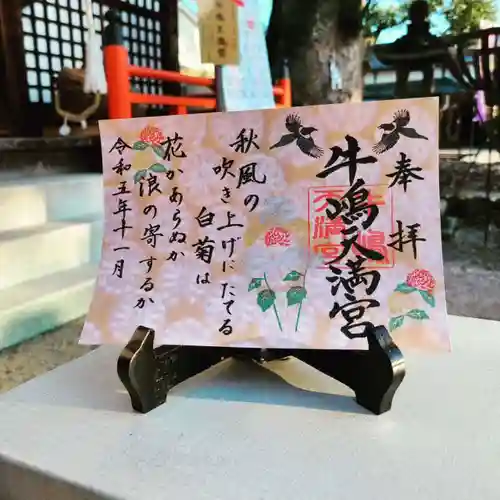 奉拝
牛嶋天満宮
秋風の
吹き上げにたてる
白菊は
花かあらぬか
浪の寄するか
令和五年十一月